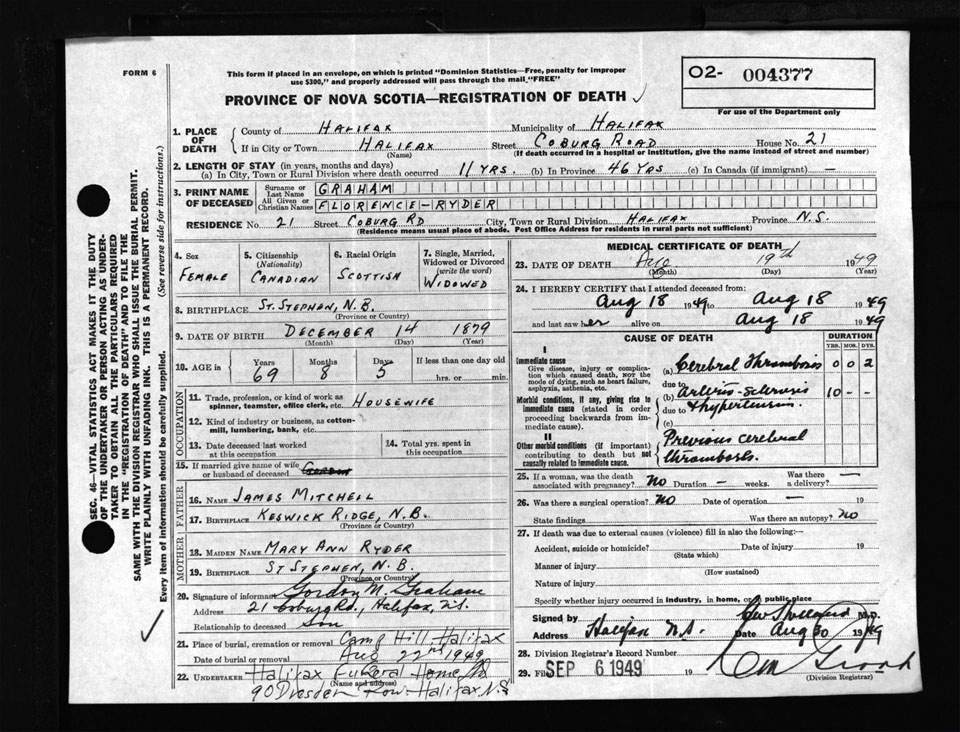 FORM 6
This form if placed in an envelope, on which is printed "Dominion Statistics—Free, penalty for improper
use $300," and properly addressed will pass through the mail "FREE"
O2- 004377
For use of the Department only
PROVINCE OF NOVA SCOTIA—REGISTRATION OF DEATH
SEC. 46—VITAL STATISTICS ACT MAKES IT THE DUTY
OF THE UNDERTAKER OR PERSON ACTING AS UNDER-
TAKER TO OBTAIN ALL THE PARTICULARS REQUIRED
IN THE "REGISTRATION OF DEATH" AND TO FILE THE
SAME WITH THE DIVISION REGISTRAR WHO SHALL ISSUE THE BURIAL PERMIT.
WRITE PLAINLY WITH UNFADING INK. THIS IS A PERMANENT RECORD.
Every item of information should be carefully supplied. (See reverse side for instructions.)
1. PLACE OF DEATH
County of HALIFAX Municipality of HALIFAX
If in City or Town HALIFAX Street COBURG ROAD House No. 21
(Name) (If death occurred in a hospital or institution, give the name instead of street and number)
2. LENGTH OF STAY (in years, months and days)
(a) In City, Town or Rural Division where death occurred 11 YRS. (b) In Province 46 YRS (c) In Canada (if immigrant) —
3. PRINT NAME OF DECEASED
Surname or Last Name GRAHAM
All Given or Christian Names FLORENCE-RYDER
RESIDENCE No. 21 Street COBURG RD City, Town or Rural Division HALIFAX Province N.S.
(Residence means usual place of abode. Post Office Address for residents in rural parts not sufficient)
4. Sex
FEMALE
5. Citizenship (Nationality)
CANADIAN
6. Racial Origin
SCOTTISH
7. Single, Married, Widowed or Divorced (write the word)
WIDOWED
8. BIRTHPLACE ST. STEPHEN, N.B.
(Province or Country)
9. DATE OF BIRTH DECEMBER 14 1879
(Month) (Day) (Year)
10. AGE in Years 69 Months 8 Days 5 If less than one day old
hrs. or min.
OCCUPATION
11. Trade, profession, or kind of work as
spinner, teamster, office clerk, etc. HOUSEWIFE
12. Kind of industry or business, as cotton-
mill, lumbering, bank, etc.
13. Date deceased last worked
at this occupation
14. Total yrs. spent in
this occupation
15. If married give name of wife
or husband of deceased
FATHER
16. Name JAMES MITCHELL
17. BIRTHPLACE KESWICK RIDGE, N.B.
(Province or Country)
MOTHER
18. MAIDEN NAME MARY ANN RYDER
19. BIRTHPLACE ST STEPHEN, N.B.
(Province or Country)
20. Signature of informant Gordon M. Graham
Address 21 Coburg Rd., Halifax, N.S.
Relationship to deceased Son
21. Place of burial, cremation or removal Camp Hill Halifax
Date of burial or removal Aug 22nd 1949
22. UNDERTAKER Halifax Funeral Home
(Name and address)
90 Dresden Row Halifax N.S
MEDICAL CERTIFICATE OF DEATH
23. DATE OF DEATH Aug 19th 1949
(Month) (Day) (Year)
24. I HEREBY CERTIFY that I attended deceased from:
Aug 18 1949 to Aug 18 1949
and last saw her alive on Aug 18 1949
CAUSE OF DEATH
DURATION
YRS. MOS. DYS.
I
Immediate cause
Give disease, injury or complica-
tion which caused death, not the
mode of dying, such as heart failure,
asphyxia, asthenia, etc.
(a) Cerebral Thrombosis 0 0 2
due to
Morbid conditions, if any, giving rise to
immediate cause (stated in order
proceeding backwards from im-
mediate cause).
(b) Arterio-Sclerosis 10 - -
due to + hypertension.
(c)
II
Other morbid conditions (if important)
contributing to death but not
causally related to immediate cause.
Previous cerebral
thrombosis.
25. If a woman, was the death
associated with pregnancy? NO Duration — weeks. Was there a delivery? —
26. Was there a surgical operation? NO Date of operation — 19
State findings Was there an autopsy? NO
27. If death was due to external causes (violence) fill in also the following:—
Accident, suicide or homicide? Date of injury 19
(State which)
Manner of injury
(How sustained)
Nature of injury
Specify whether injury occurred in industry, in home, or in public place
Signed by M.D.
Address Halifax N.S. Date Aug 30 1949
28. Division Registrar's Record Number
29. Filed SEP 6 1949 19
(Division Registrar)